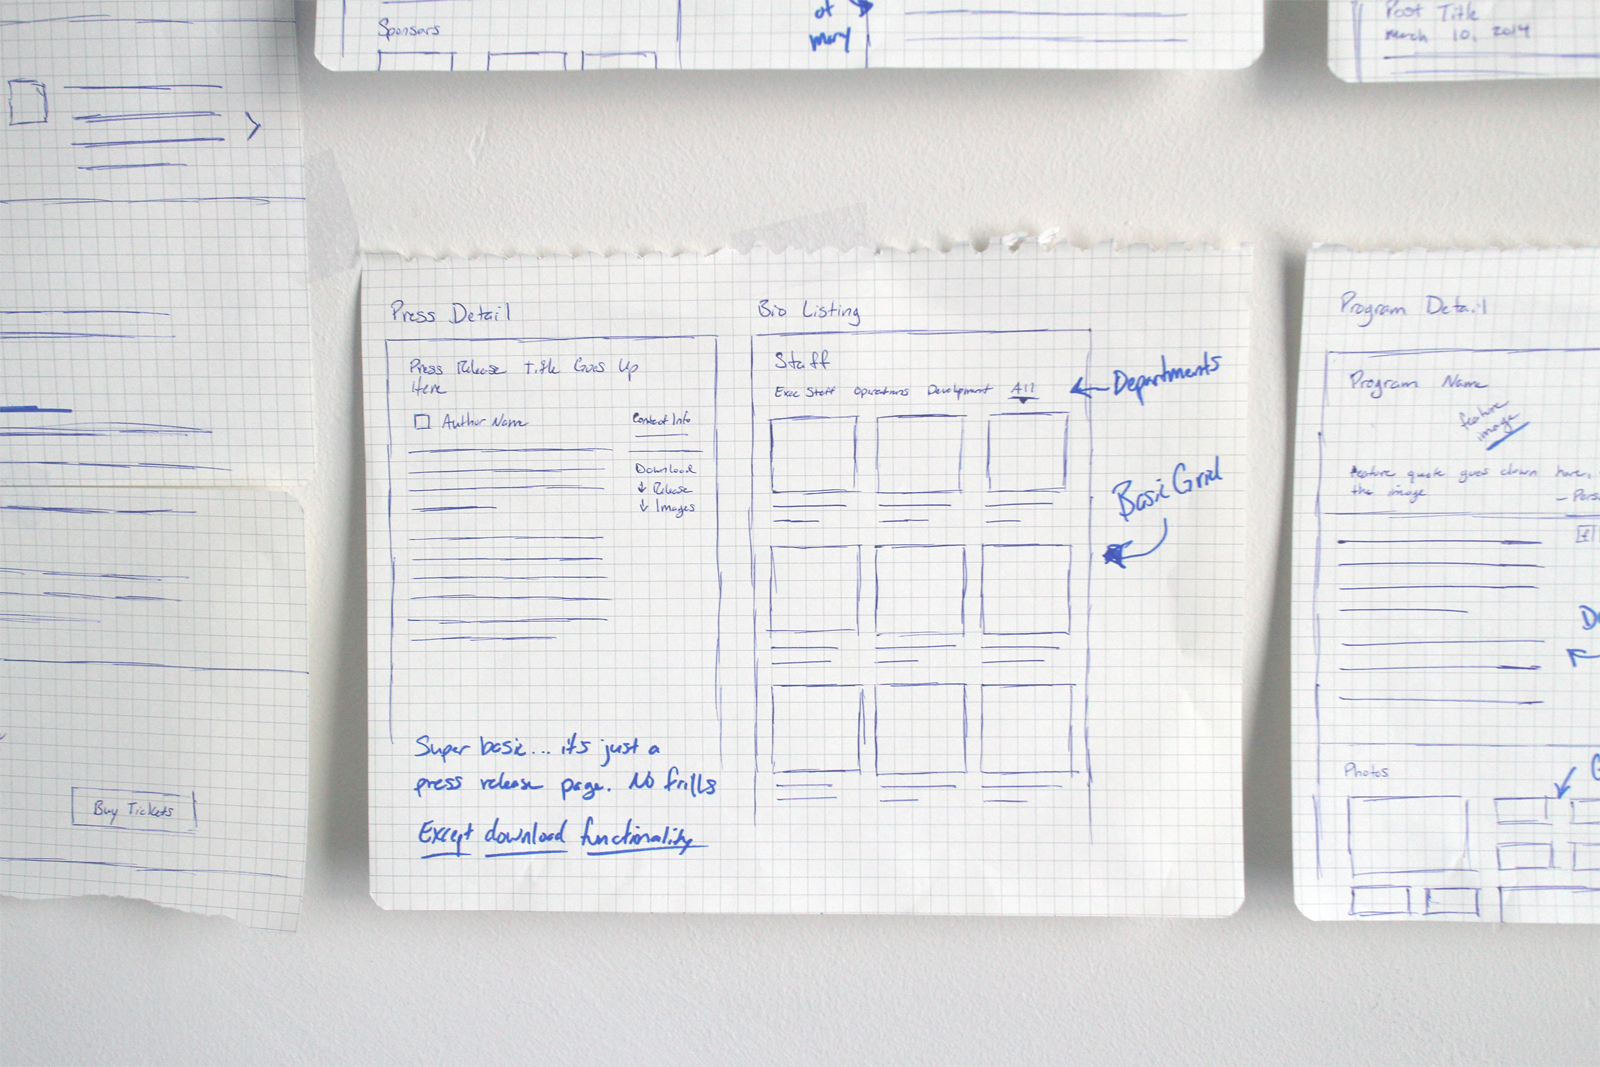 Sponsors
of
many
Post Title
March 10, 2014
Buy Tickets
Press Detail
Press Release Title Goes Up
Here
Author Name
Contact Info
Download
↓ Release
↓ Images
Super basic... it's just a
press release page. No frills
Except download functionality
Bio Listing
Staff
Exec Staff Operations Development All
Departments
Basic Grid
Program Detail
Program Name
feature
image
Feature quote goes down here,
the image
Photos